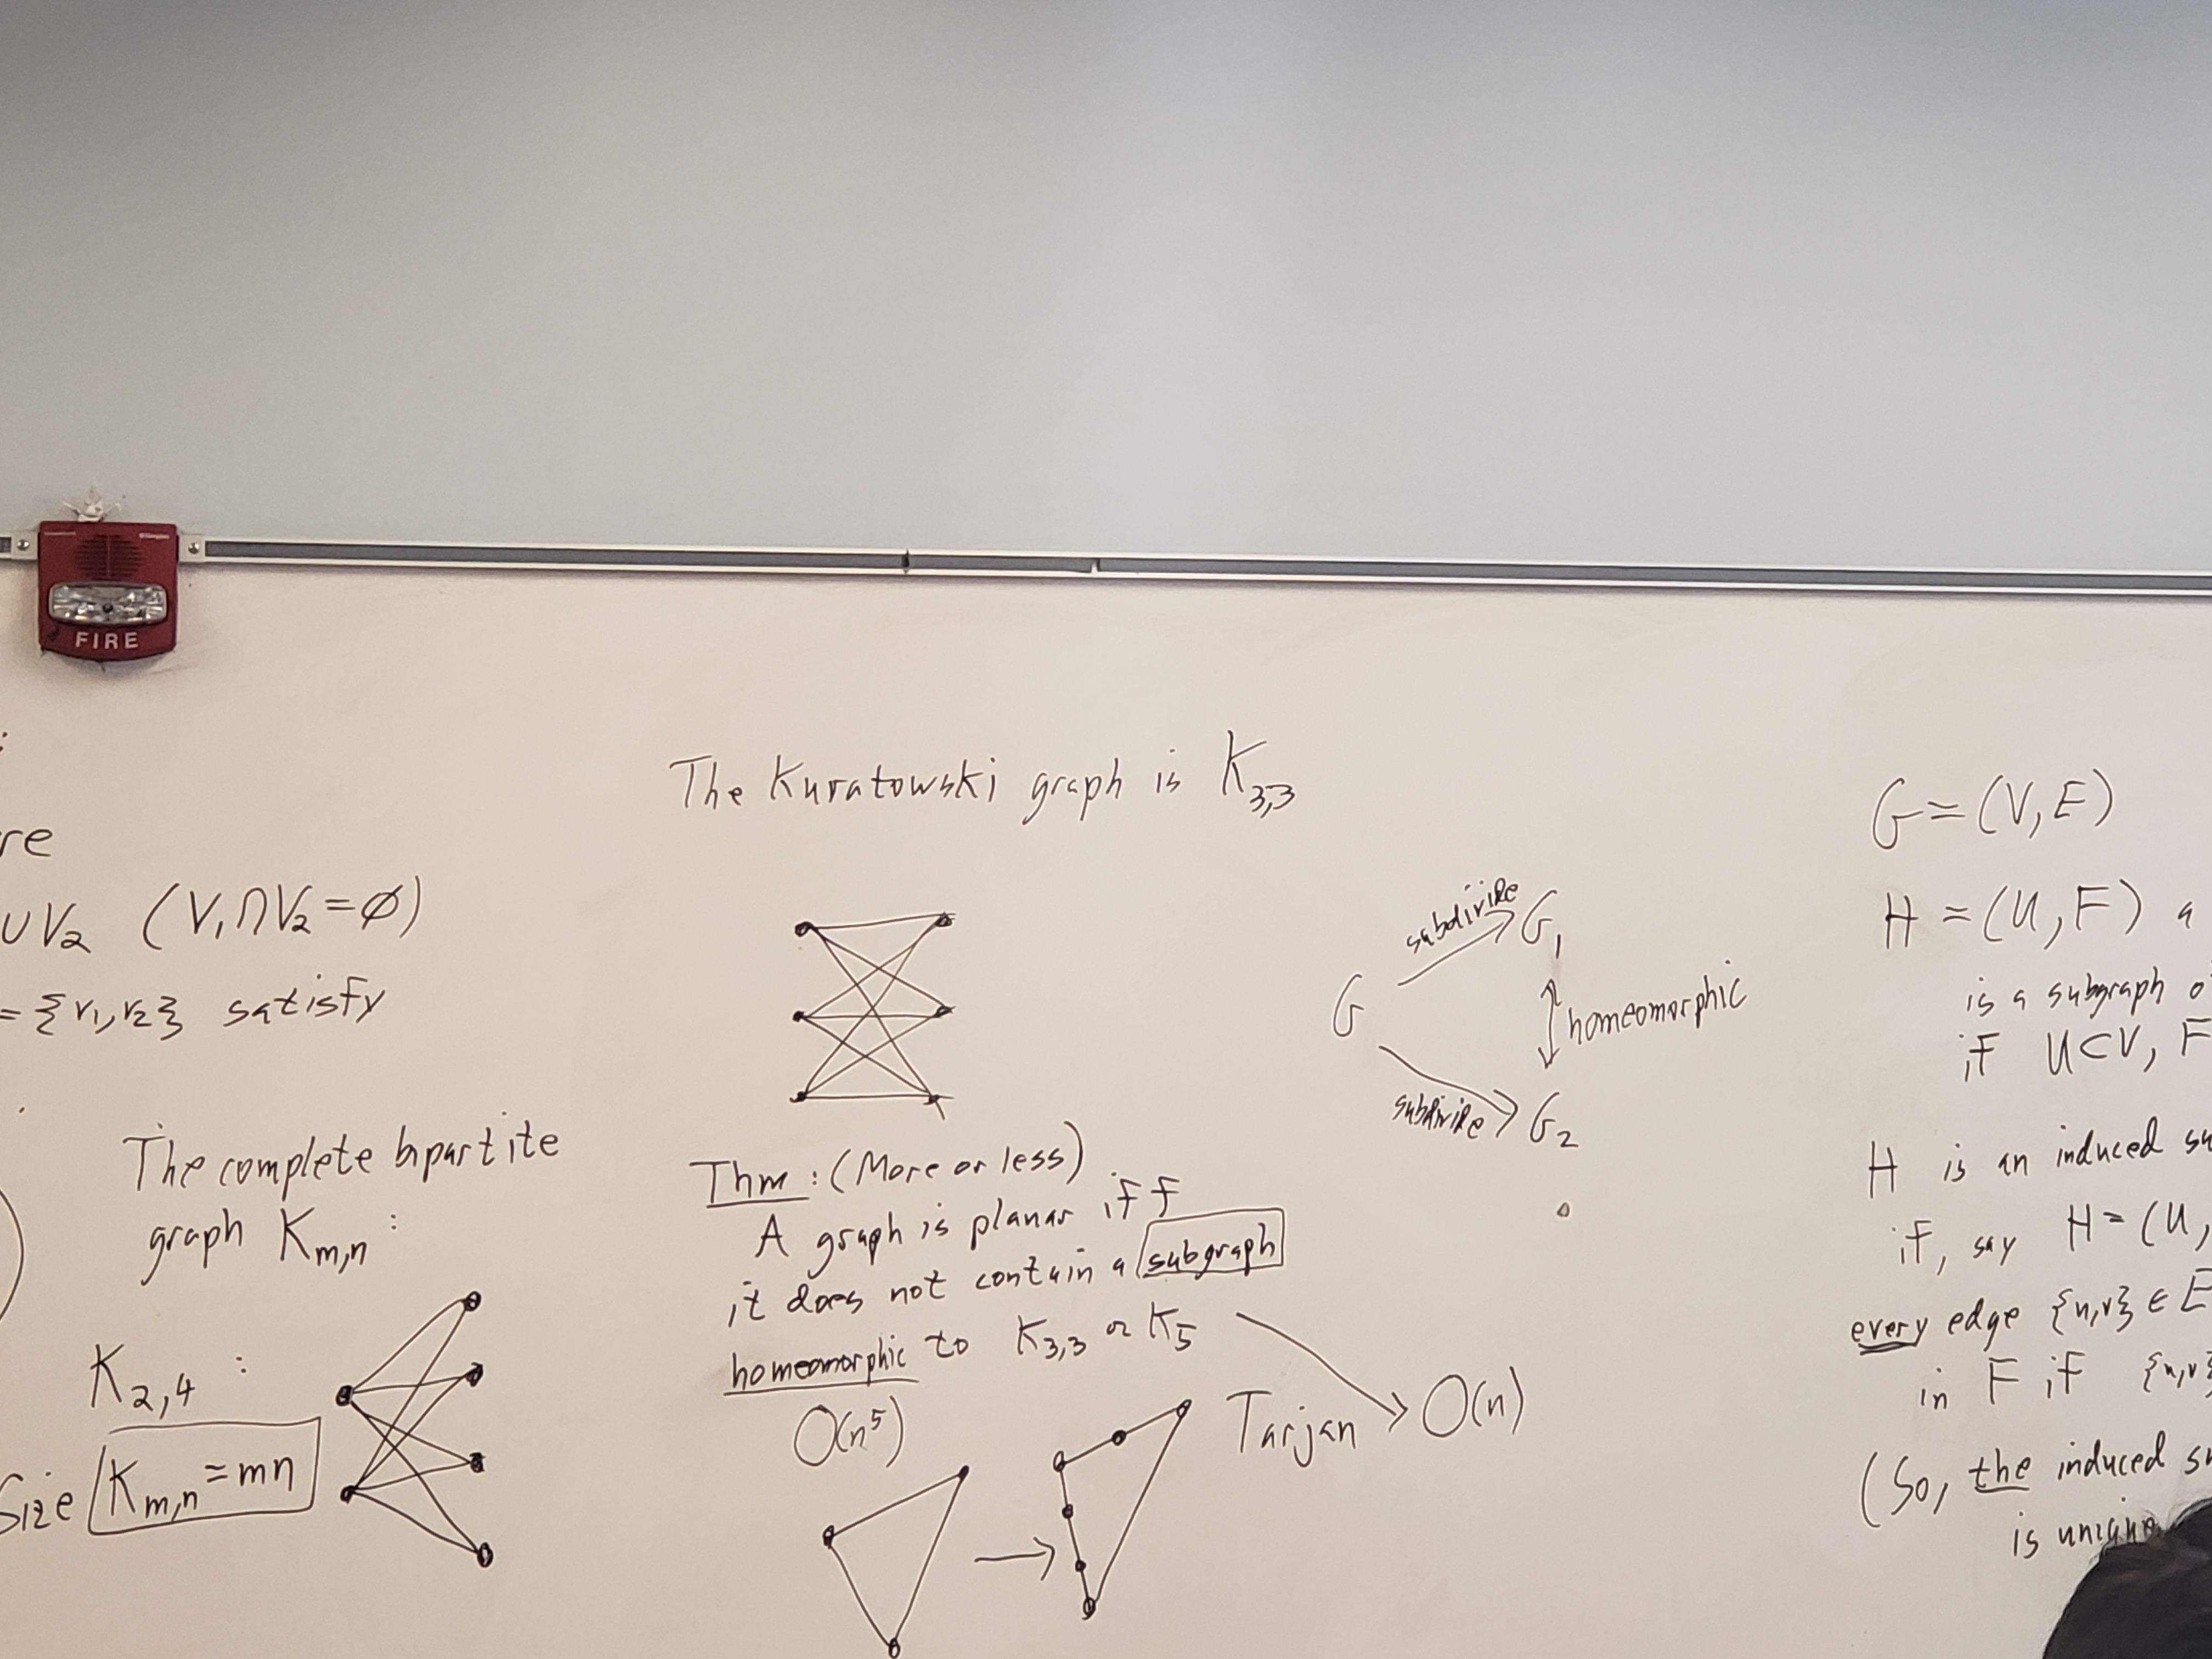 FIRE
re
∪ V₂ (V₁ ∩ V₂ = ∅)
= {v₁, v₂} satisfy
The complete bipartite
graph K_{m,n} :
K_{2,4} :
Size K_{m,n} = mn
The Kuratowski graph is K_{3,3}
Thm : (More or less)
A graph is planar iff
it does not contain a subgraph
homeomorphic to K_{3,3} or K₅
O(n⁵)
Tarjan → O(n)
subdivide
G₁
G
homeomorphic
subdivide
G₂
G = (V, E)
H = (U, F) a
is a subgraph o
if U ⊂ V, F
H is an induced su
if, say H = (U,
every edge {u,v} ∈ E
in F if {u,v}
(So, the induced su
is unique